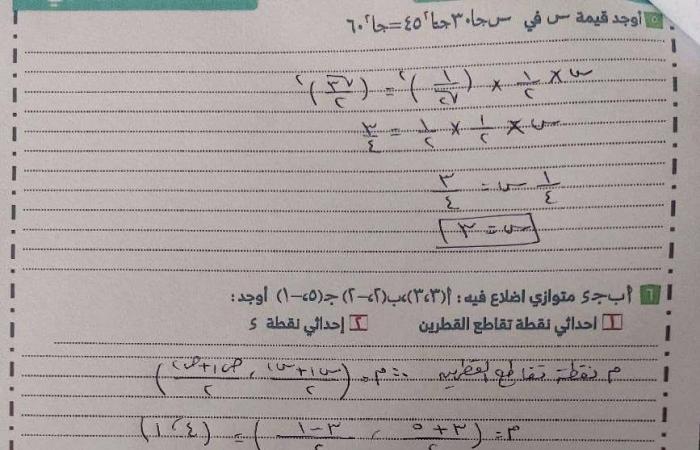 ٥ أوجد قيمة س في س جا٣٠ جتا²٤٥=جا²٦٠
س × ١/٢ × (١/√٢)² = (√٣/٢)²
س × ١/٢ × ١/٢ = ٣/٤
١/٤ س = ٣/٤
س = ٣
٦ أ ب ج د متوازي اضلاع فيه : أ(٣،٣)،ب(٢،-٢) ج(٥،-١) أوجد:
١ احداثي نقطة تقاطع القطرين ٢ إحداثي نقطة د
م نقطة تقاطع القطرين ∴ م = (س١+س٢/٢ , ص١+ص٢/٢)
م = (٣+٥/٢ , ٣-١/٢) = (٤ ، ١)